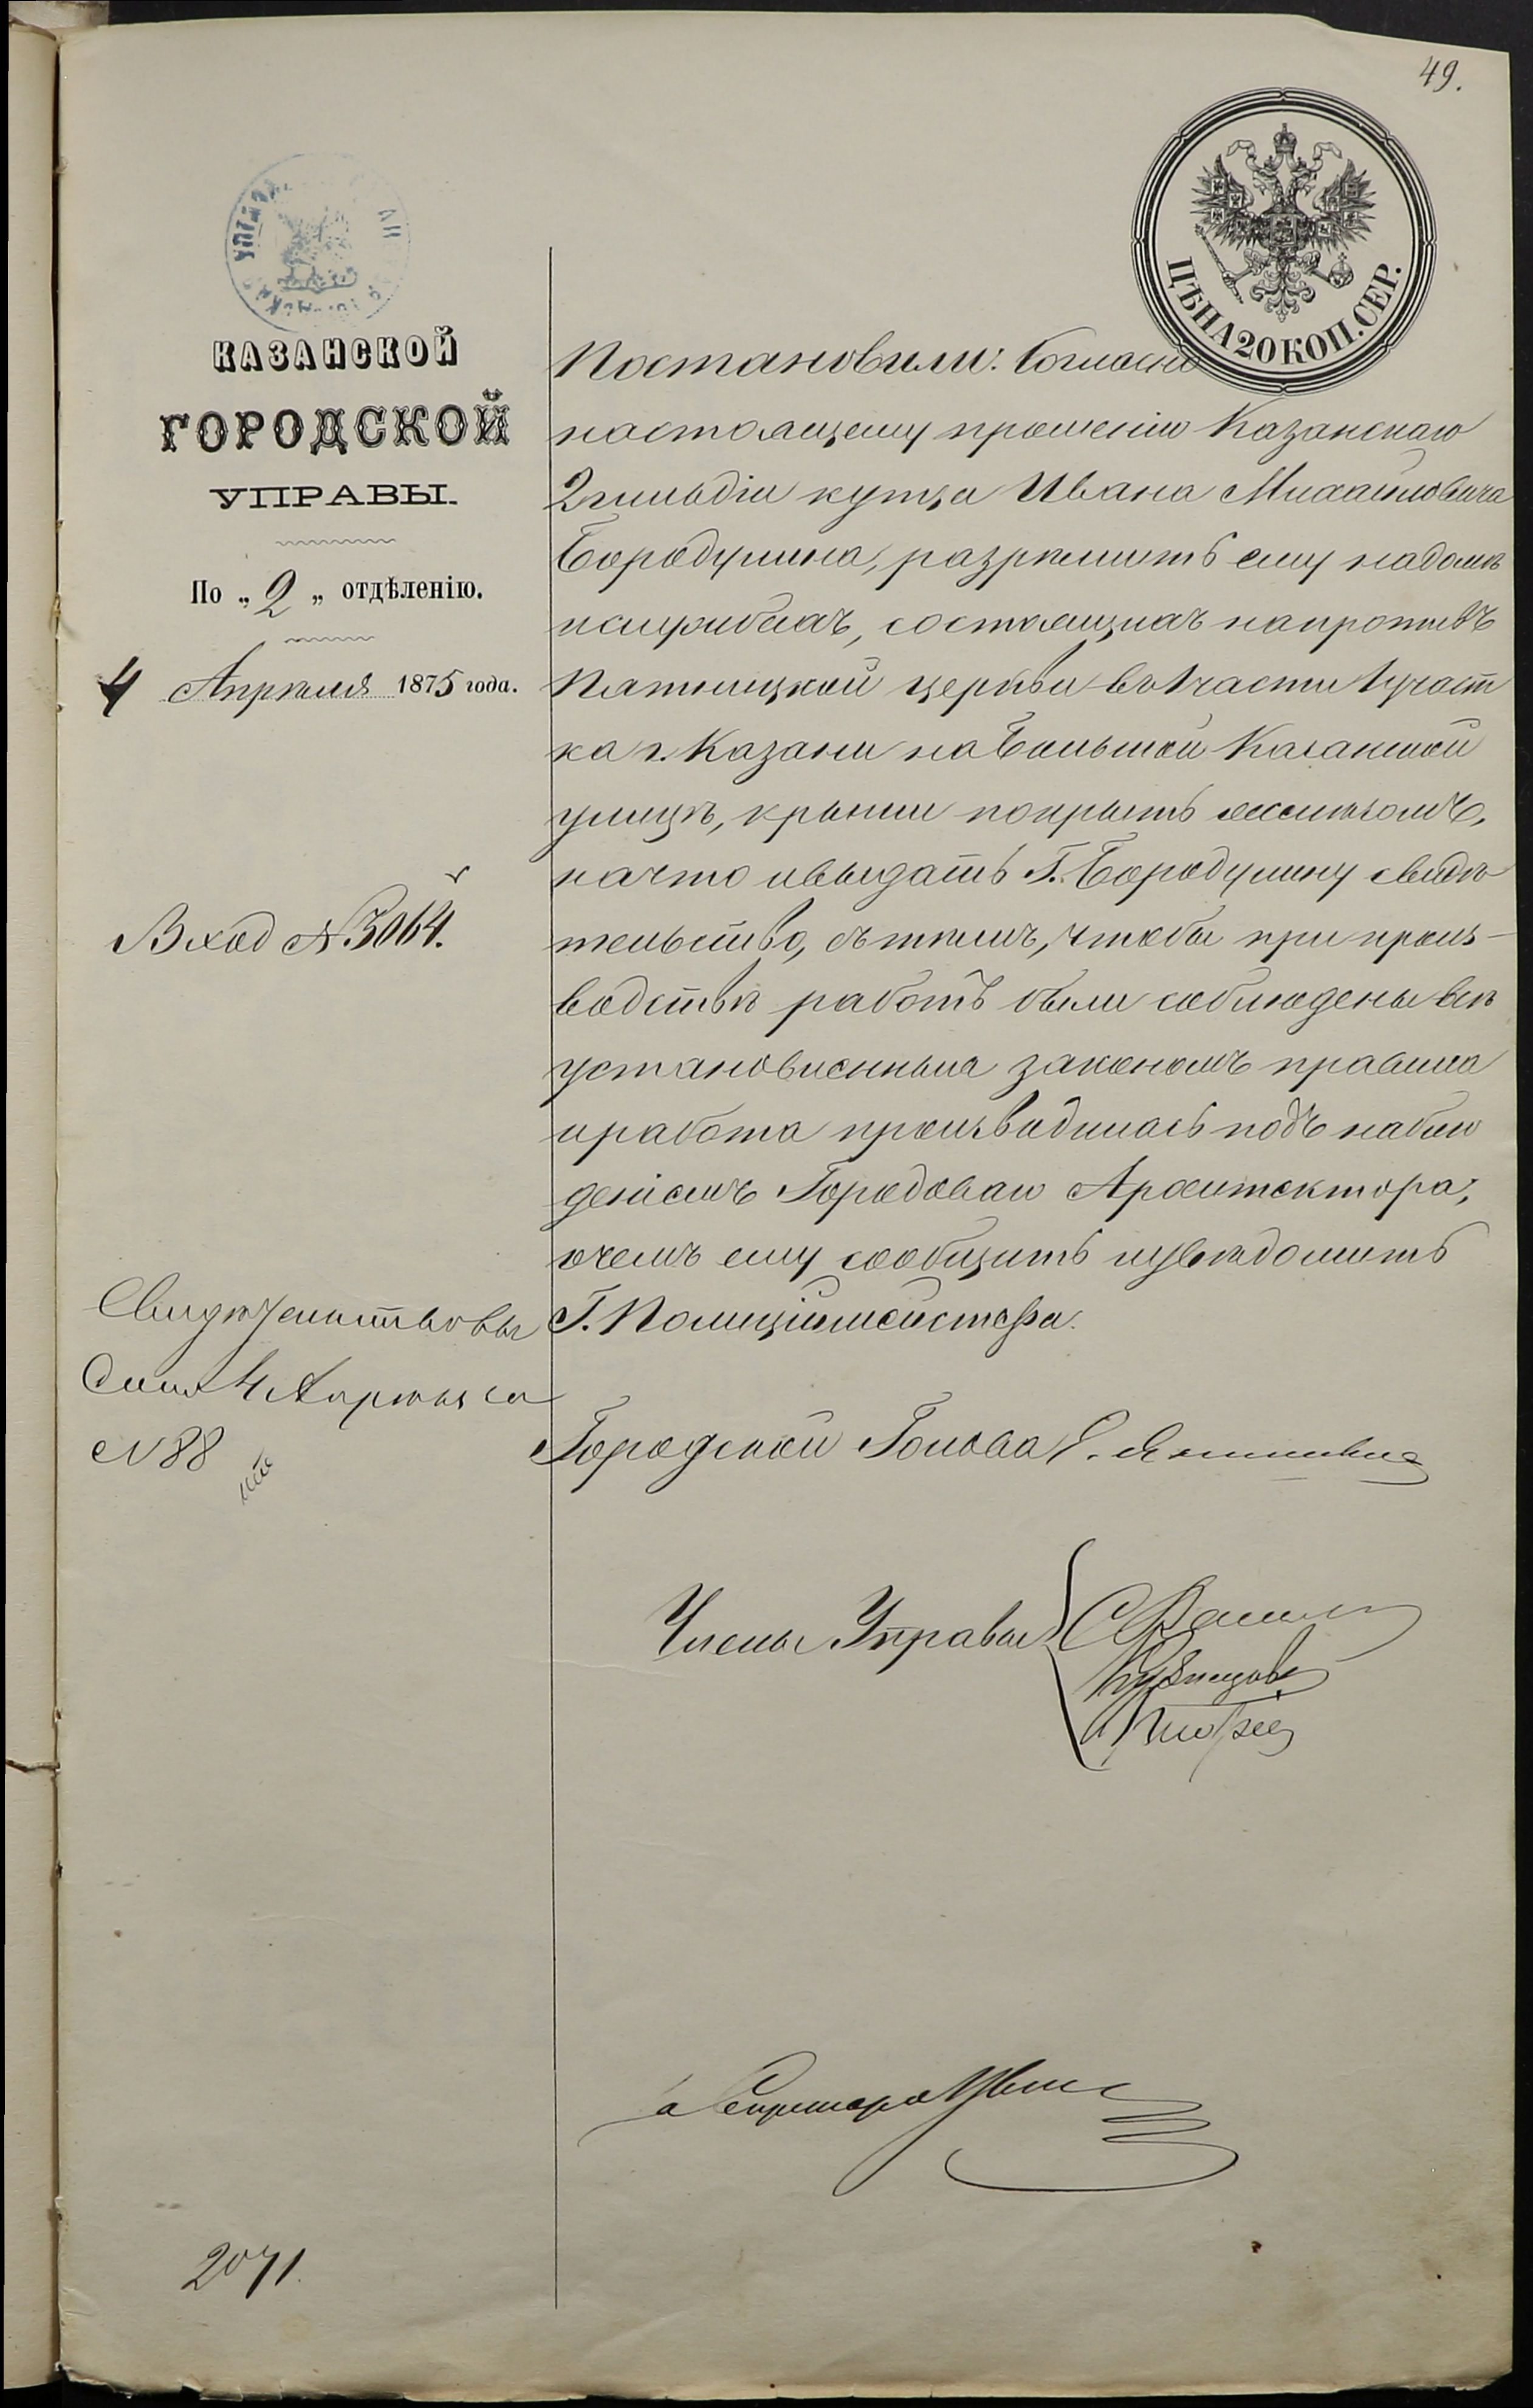 49.
ЦѢНА 20 КОП. СЕР.
КАЗАНСКОЙ
ГОРОДСКОЙ
УПРАВЫ.
По „2„ отдѣленію.
4 Апрѣля 1875 года.
Вход №3064.
Свидѣтельство вы
дано 4 Апрѣля за
№ 88
Постановили: Согласно
настоящему прошенію Казанскаго
2 гильдіи купца Ивана Михайловича
Бородулина, разрѣшить ему на домѣ
и службахъ, состоящихъ напротивъ
Пятницкой церкви в 1 части 1 участ
ка г. Казани на Большой Казанской
улицѣ, крыши покрыть желѣзомъ,
на что и выдать Г. Бородулину свидѣ
тельство, съ тѣмъ, чтобы при произ-
водствѣ работъ были соблюдены всѣ
установленныя закономъ правила
и работа производилась подъ наблю
деніемъ Городоваго Архитектора,
о чемъ ему сообщить и увѣдомить
Г. Полиціймейстера.
Городской Голова Е.
Члены Управы
Кузнецовъ
Секретарь
2071.